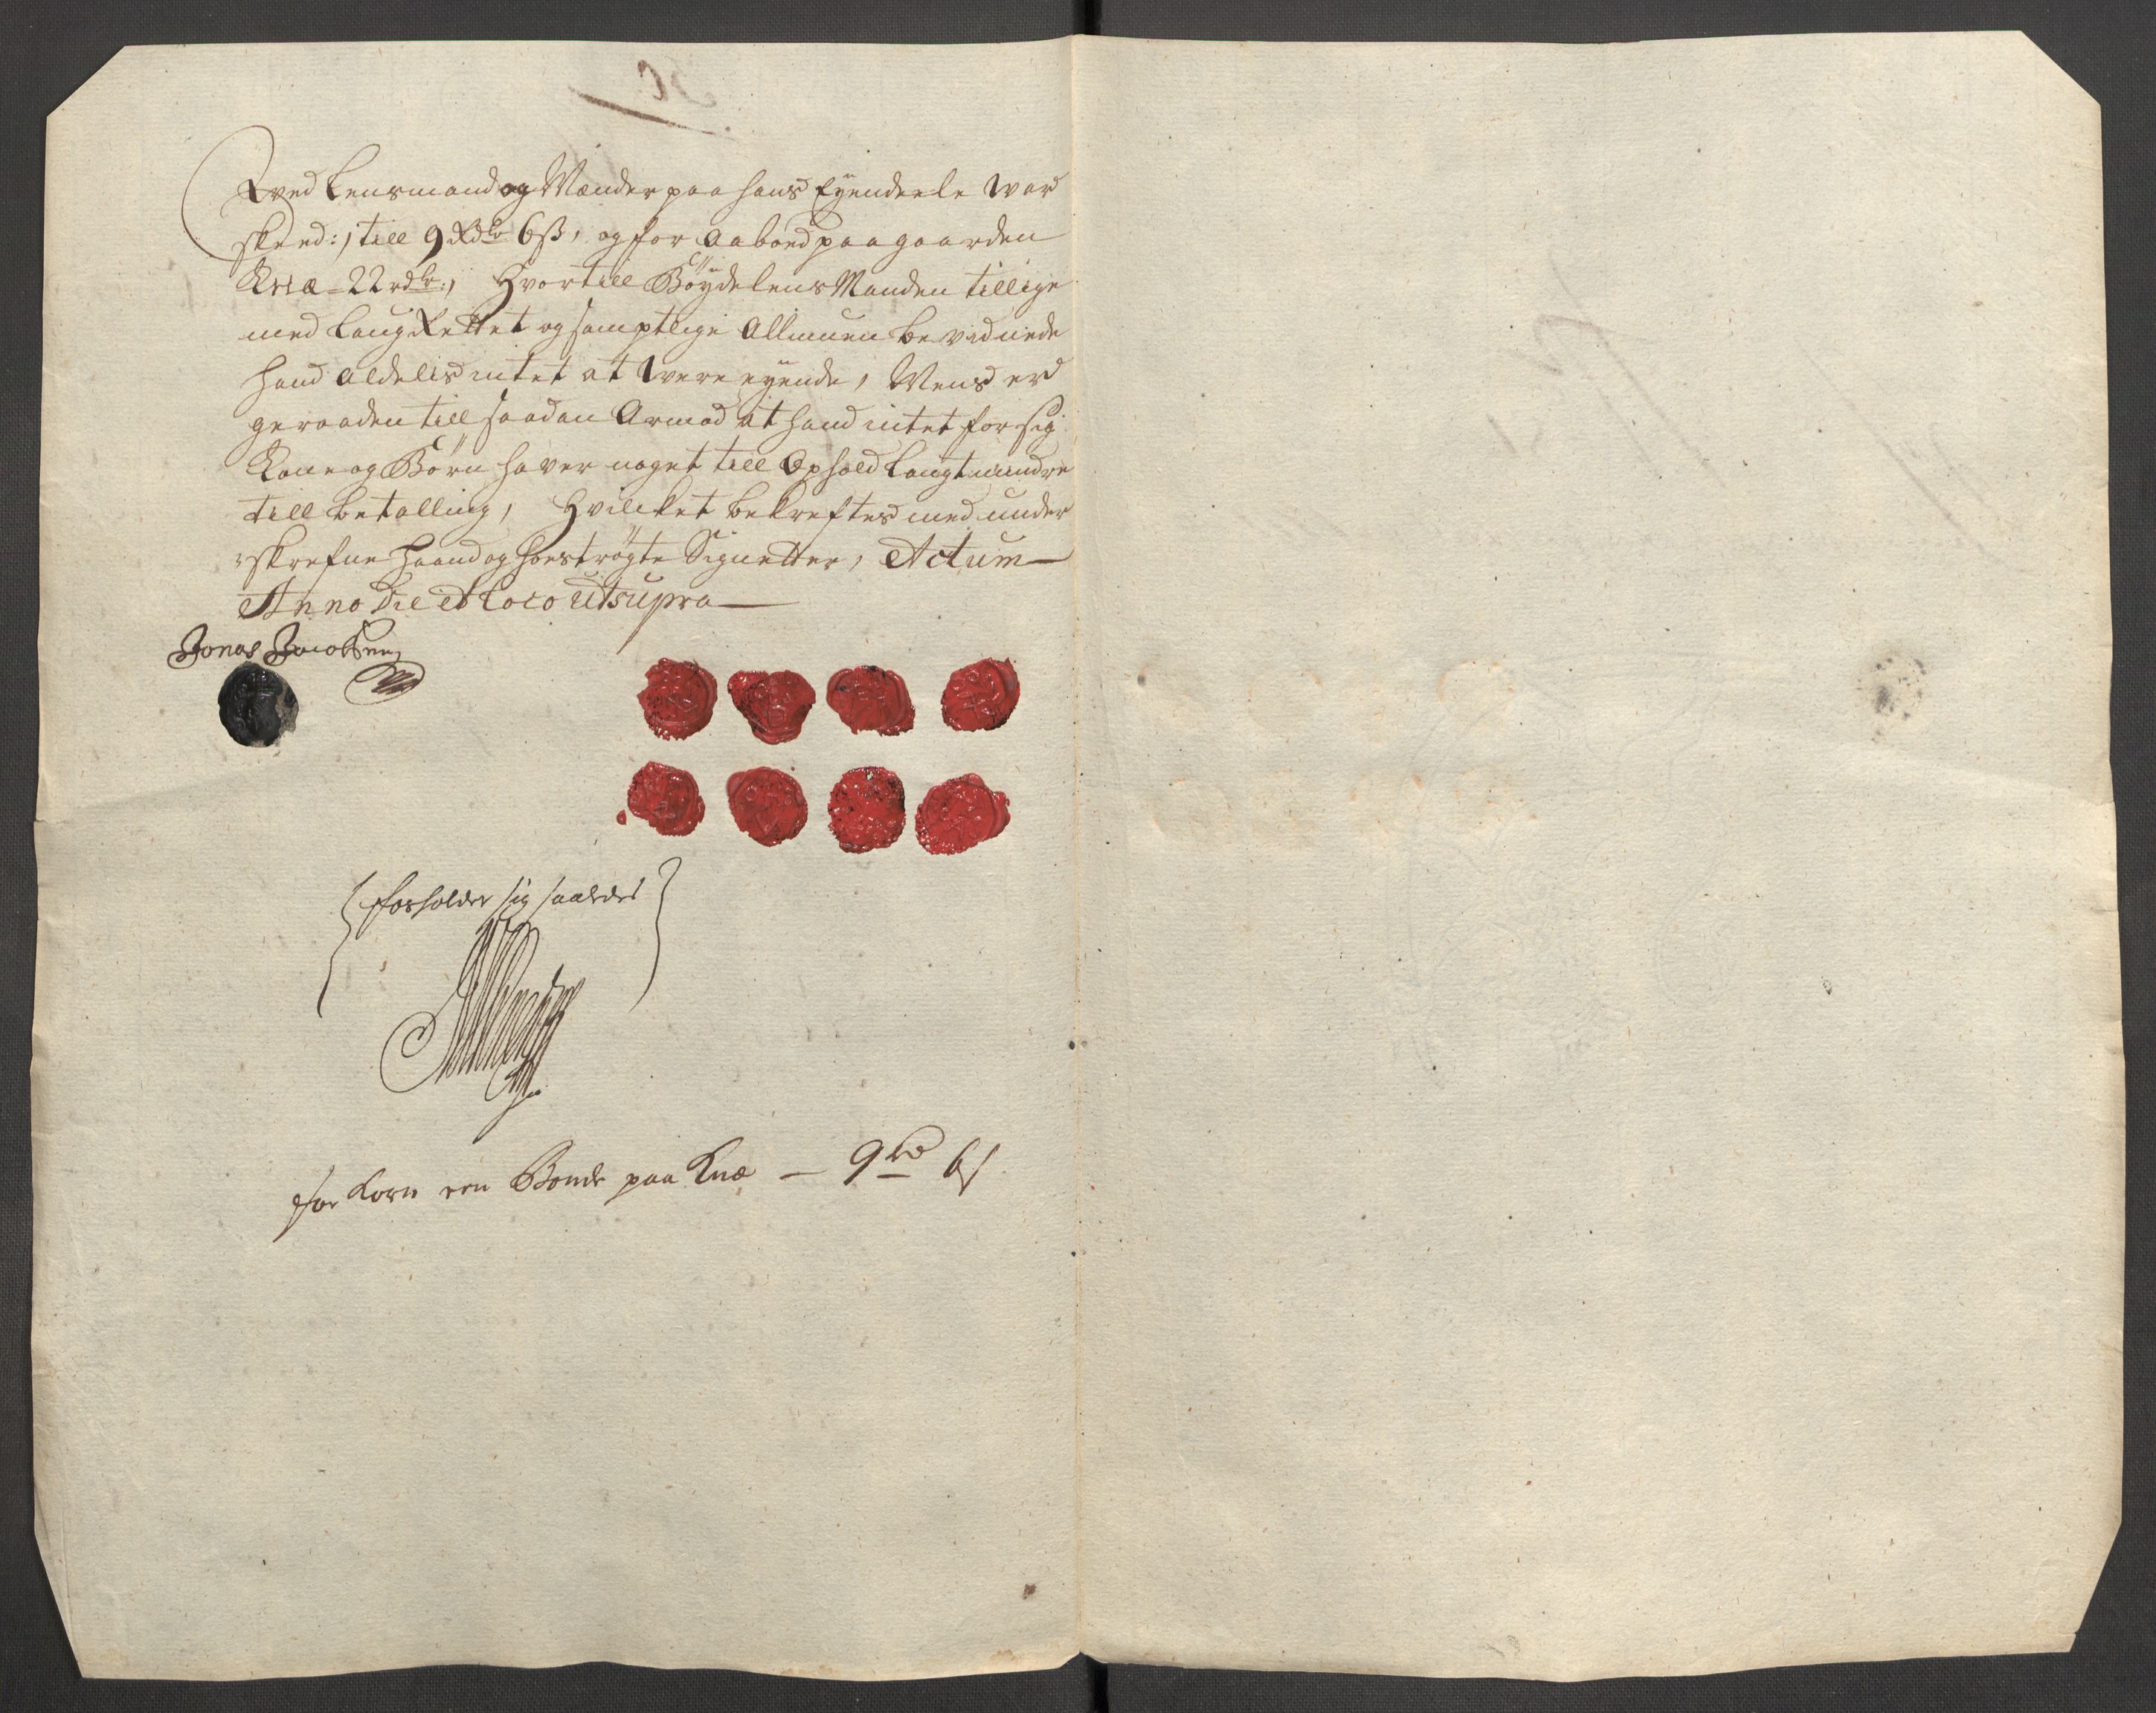 Wed Lensmand og Mænder paa hans Eyendeele war
skeed :/ till 9 Rdlr 6 ß, og for Aaboed paa gaarden
Knæ - 22 rdlr:, Hvortill Böydelens Manden tillige
med LaugRettet og samptlige Allmuen bevidnede
hand aldelis intet at were eyende, Mens er
geraaden till saadan Armod at hand intet for sig
Kone og Börn haver noget till Ophold langt mindre
till betalling, Hvilcket bekreftes med under
skrefne haand og hoeströgte Signetter, Actum
Anno Die et Loco Utsupra
Jonas Jacobsen
forholder sig saaledes
for Korn een Bonde paa Knæ - 9 rd 6 ß